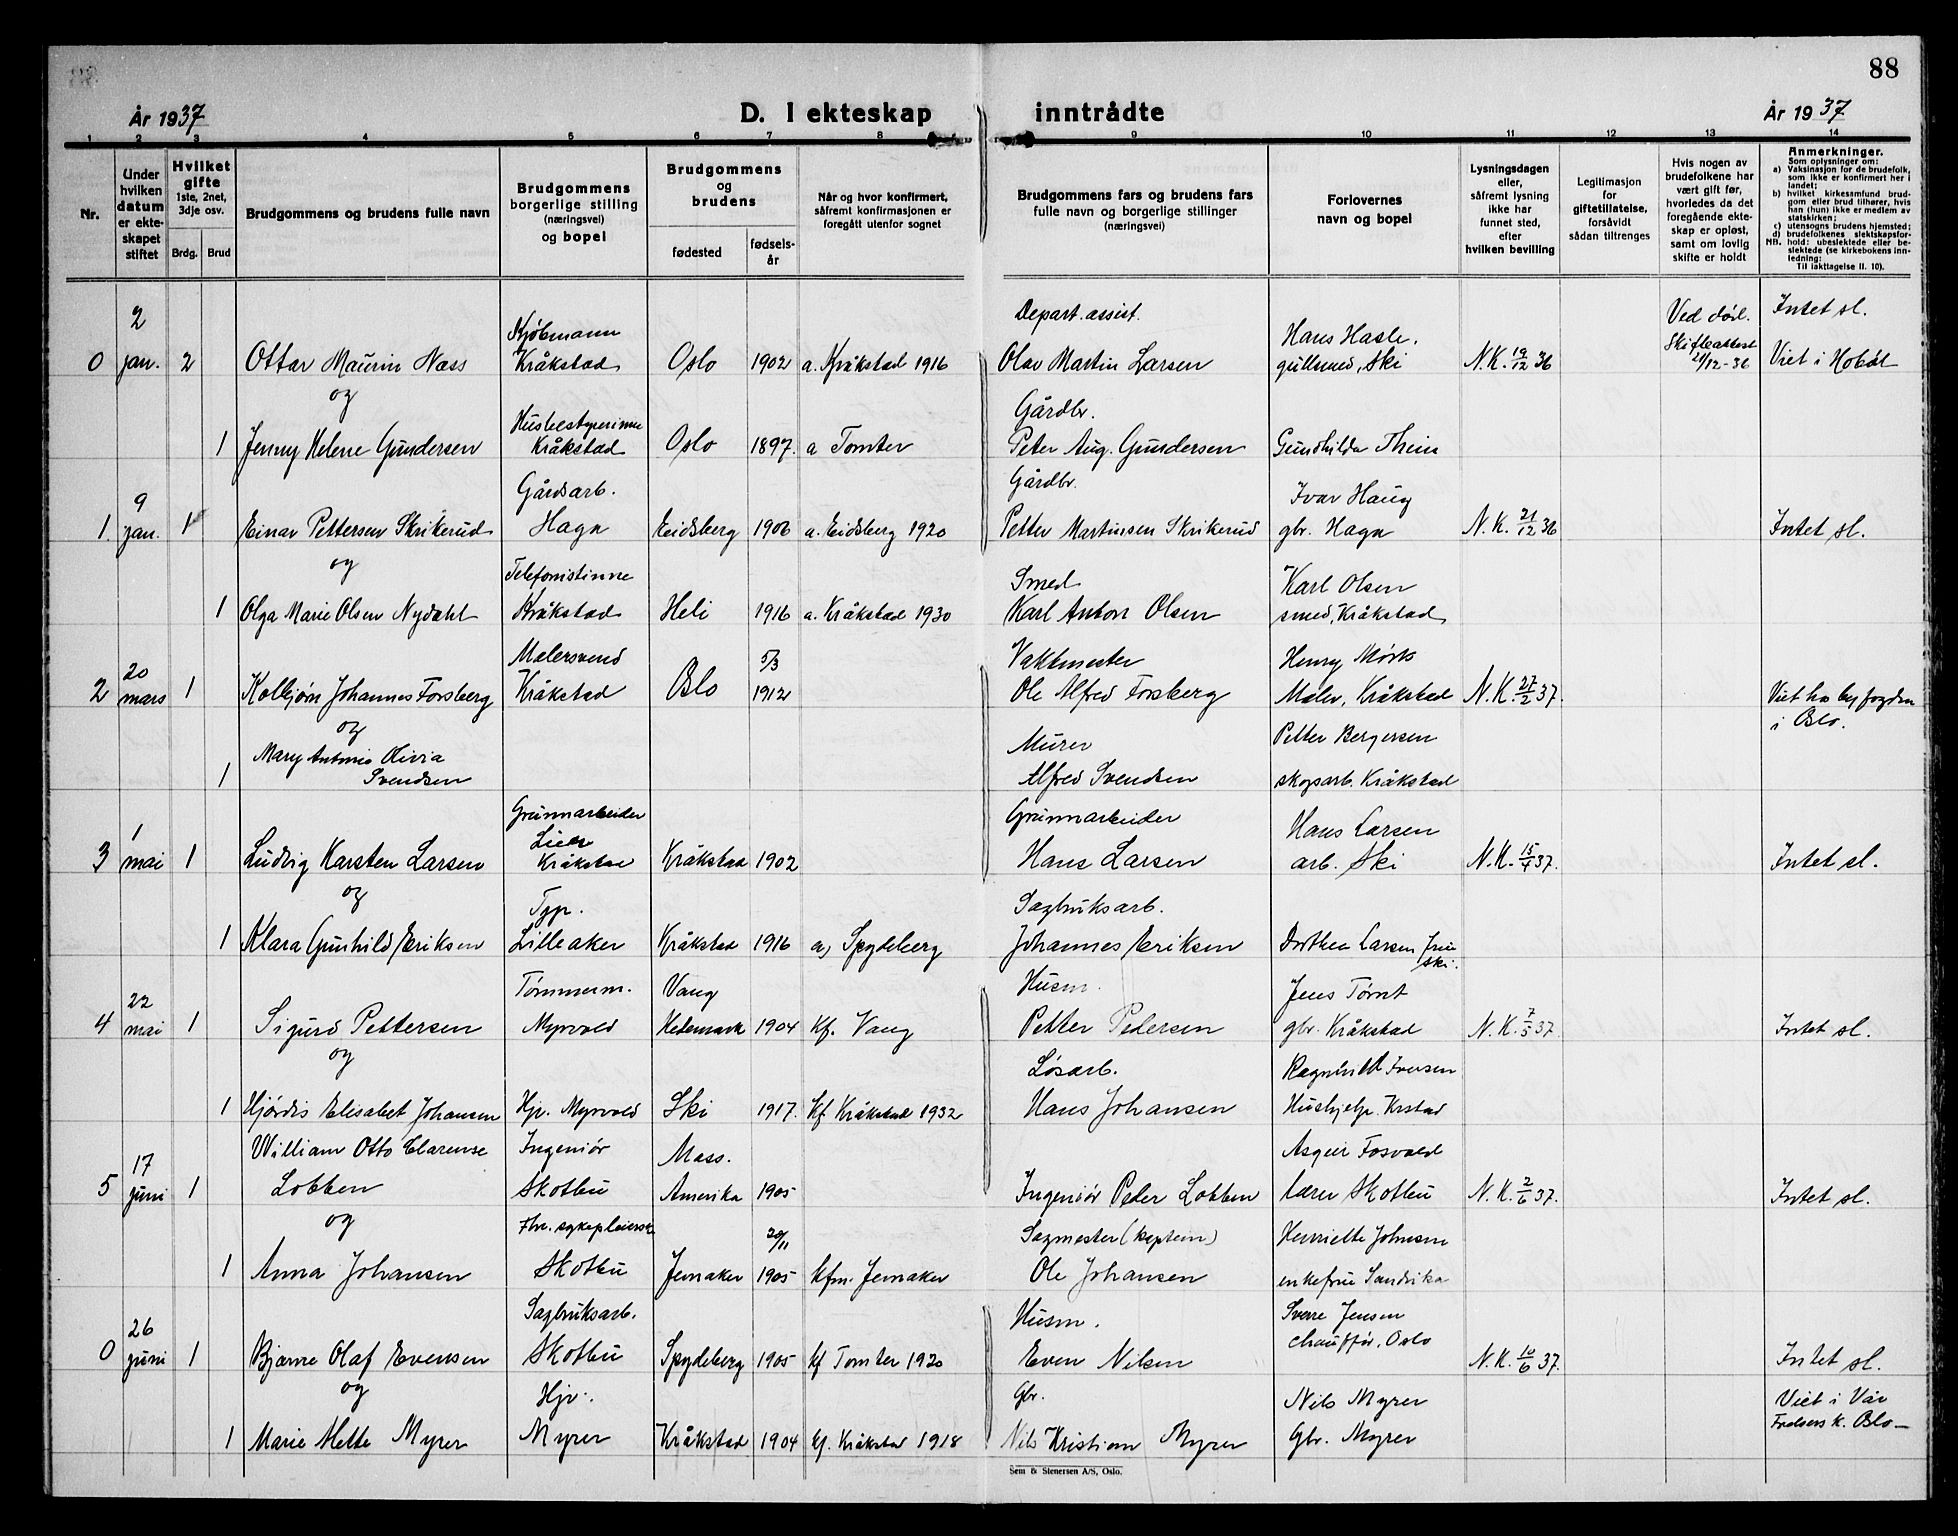 88
År 1937
D. I ekteskap inntrådte
År 1937
1 2 3 4 5 6 7 8 9 10 11 12 13 14
Nr.
Under hvilken datum er ekteskapet stiftet
Hvilket gifte
1ste, 2net, 3dje osv.
Brdg. Brud
Brudgommens og brudens fulle navn
Brudgommens borgerlige stilling (næringsvei) og bopel
Brudgommens og brudens
fødested
fødselsår
Når og hvor konfirmert, såfremt konfirmasjonen er foregått utenfor sognet
Brudgommens fars og brudens fars fulle navn og borgerlige stillinger (næringsvei)
Forlovernes navn og bopel
Lysningsdagen eller, såfremt lysning ikke har funnet sted, efter hvilken bevilling
Legitimasjon for giftetillatelse, forsåvidt sådan tiltrenges
Hvis nogen av brudefolkene har vært gift før, hvorledes da det foregående ekteskap er opløst, samt om lovlig skifte er holdt
Anmerkninger.
Som oplysninger om:
a) Vaksinasjon for de brudefolk, som ikke er konfirmert her i landet;
b) hvilket kirkesamfund brudgom eller brud tilhører, hvis han (hun) ikke er medlem av statskirken;
c) utensogns brudens hjemsted;
d) brudefolkenes slektskapsforhold: ubeslektede eller beslektede (se kirkebokens innledning:
NB.
Til iakttagelse II. 10).
2 Kjøbmann Depart. assist. Hans Hasle. Ved død. Intet sl.
0 jan. 2 Ottar Maurin Næss Kråkstad Oslo 1902 a. Kråkstad 1916 Olav Martin Larsen gullsmed, Ski N.K. 19/12 36 Skifteattest 21/12-36 Viet i Hobøl
og
Husbestyrerinne Gårdbr.
1 Jenny Helene Gundersen Kråkstad Oslo 1897. a Tomter Peter Aug. Gundersen Gunhilda Thein
9 Gårdsarb. Gårdbr. Ivar Haug
1. jan. 1 Einar Pettersen Skrikerud Haga Eidsberg 1906 a. Eidsberg 1920 Petter Martinsen Skrikerud gbr. Haga N.K. 21/12 36 Intet sl.
og
Telefonistinne Smed Karl Olsen
1 Olga Marie Olsen Nydahl Kråkstad Heli 1916 a. Kråkstad 1930 Karl Anton Olsen smed, Kråkstad
20 Malersvend 5/3 Vaktmester Henry Mørk
2 mars 1 Kolbjørn Johannes Forsberg Kråkstad Oslo 1912 Ole Alfred Forsberg Maler, Kråkstad N.K. 27/2 37. Viet hos byfogden i Oslo.
og
Mary Antonie Olivia Murer Petter Bergersen
1 Svendsen Alfred Svendsen skogsarb. Kråkstad
1 Grunnarbeider Grunnarbeider Hans Larsen
3 mai 1 Ludvig Karsten Larsen Kråkstad Kråkstad 1902 Hans Larsen arb. Ski N.K. 15/4 37. Intet sl.
og
Typ. Sagbruksarb.
1 Klara Gunhild Eriksen Lilleaker Kråkstad 1916 a, Spydeberg Johannes Eriksen Dorthea Larsen frue Ski.
22 Tømmerm. Vang Husm. Jens Tørnt
4 mai 1 Sigurd Pettersen Myrvold Hedemark 1904 kf. Vang Petter Pedersen gbr. Kråkstad N.K. 7/5 37. Intet sl.
og
Løsarb. Ragnhild Iversen
1 Hjørdis Elisabet Johansen Hjv. Myrvold Ski 1917. kf Kråkstad 1932 Hans Johansen Hushjelp. Krstad
17 William Otto Clarense Ingeniør Mass. Asgeir Fosvold
5 juni 1 Lobben Skotbu Amerika 1905 Ingeniør Peter Lobben lærer Skotbu N.K. 2/6 37. Intet sl.
og
Fhv. sykepleierske 20/11 Sagmester (kaptein) Henriette Johnsen
1 Anna Johansen Skotbu Jernaker 1905 kfm. Jernaker Ole Johansen enkefrue Sandvika
26 Sagbruksarb. Husm. Sverre Jensen
0 juni 1 Bjarne Olaf Evensen Skotbu Spydeberg 1905 kf Tomter 1920 Even Nilsen chauffør, Oslo N.K. 10/6 37. Intet sl.
og
Hjv. Gbr. Nils Myrer Viet i Vår
1 Marie Mette Myrer Myrer Kråkstad 1904 kf. Kråkstad 1918 Nils Kristian Myrer Gbr. Myrer Frelsers k. Oslo
Sem & Stenersen A/S, Oslo.